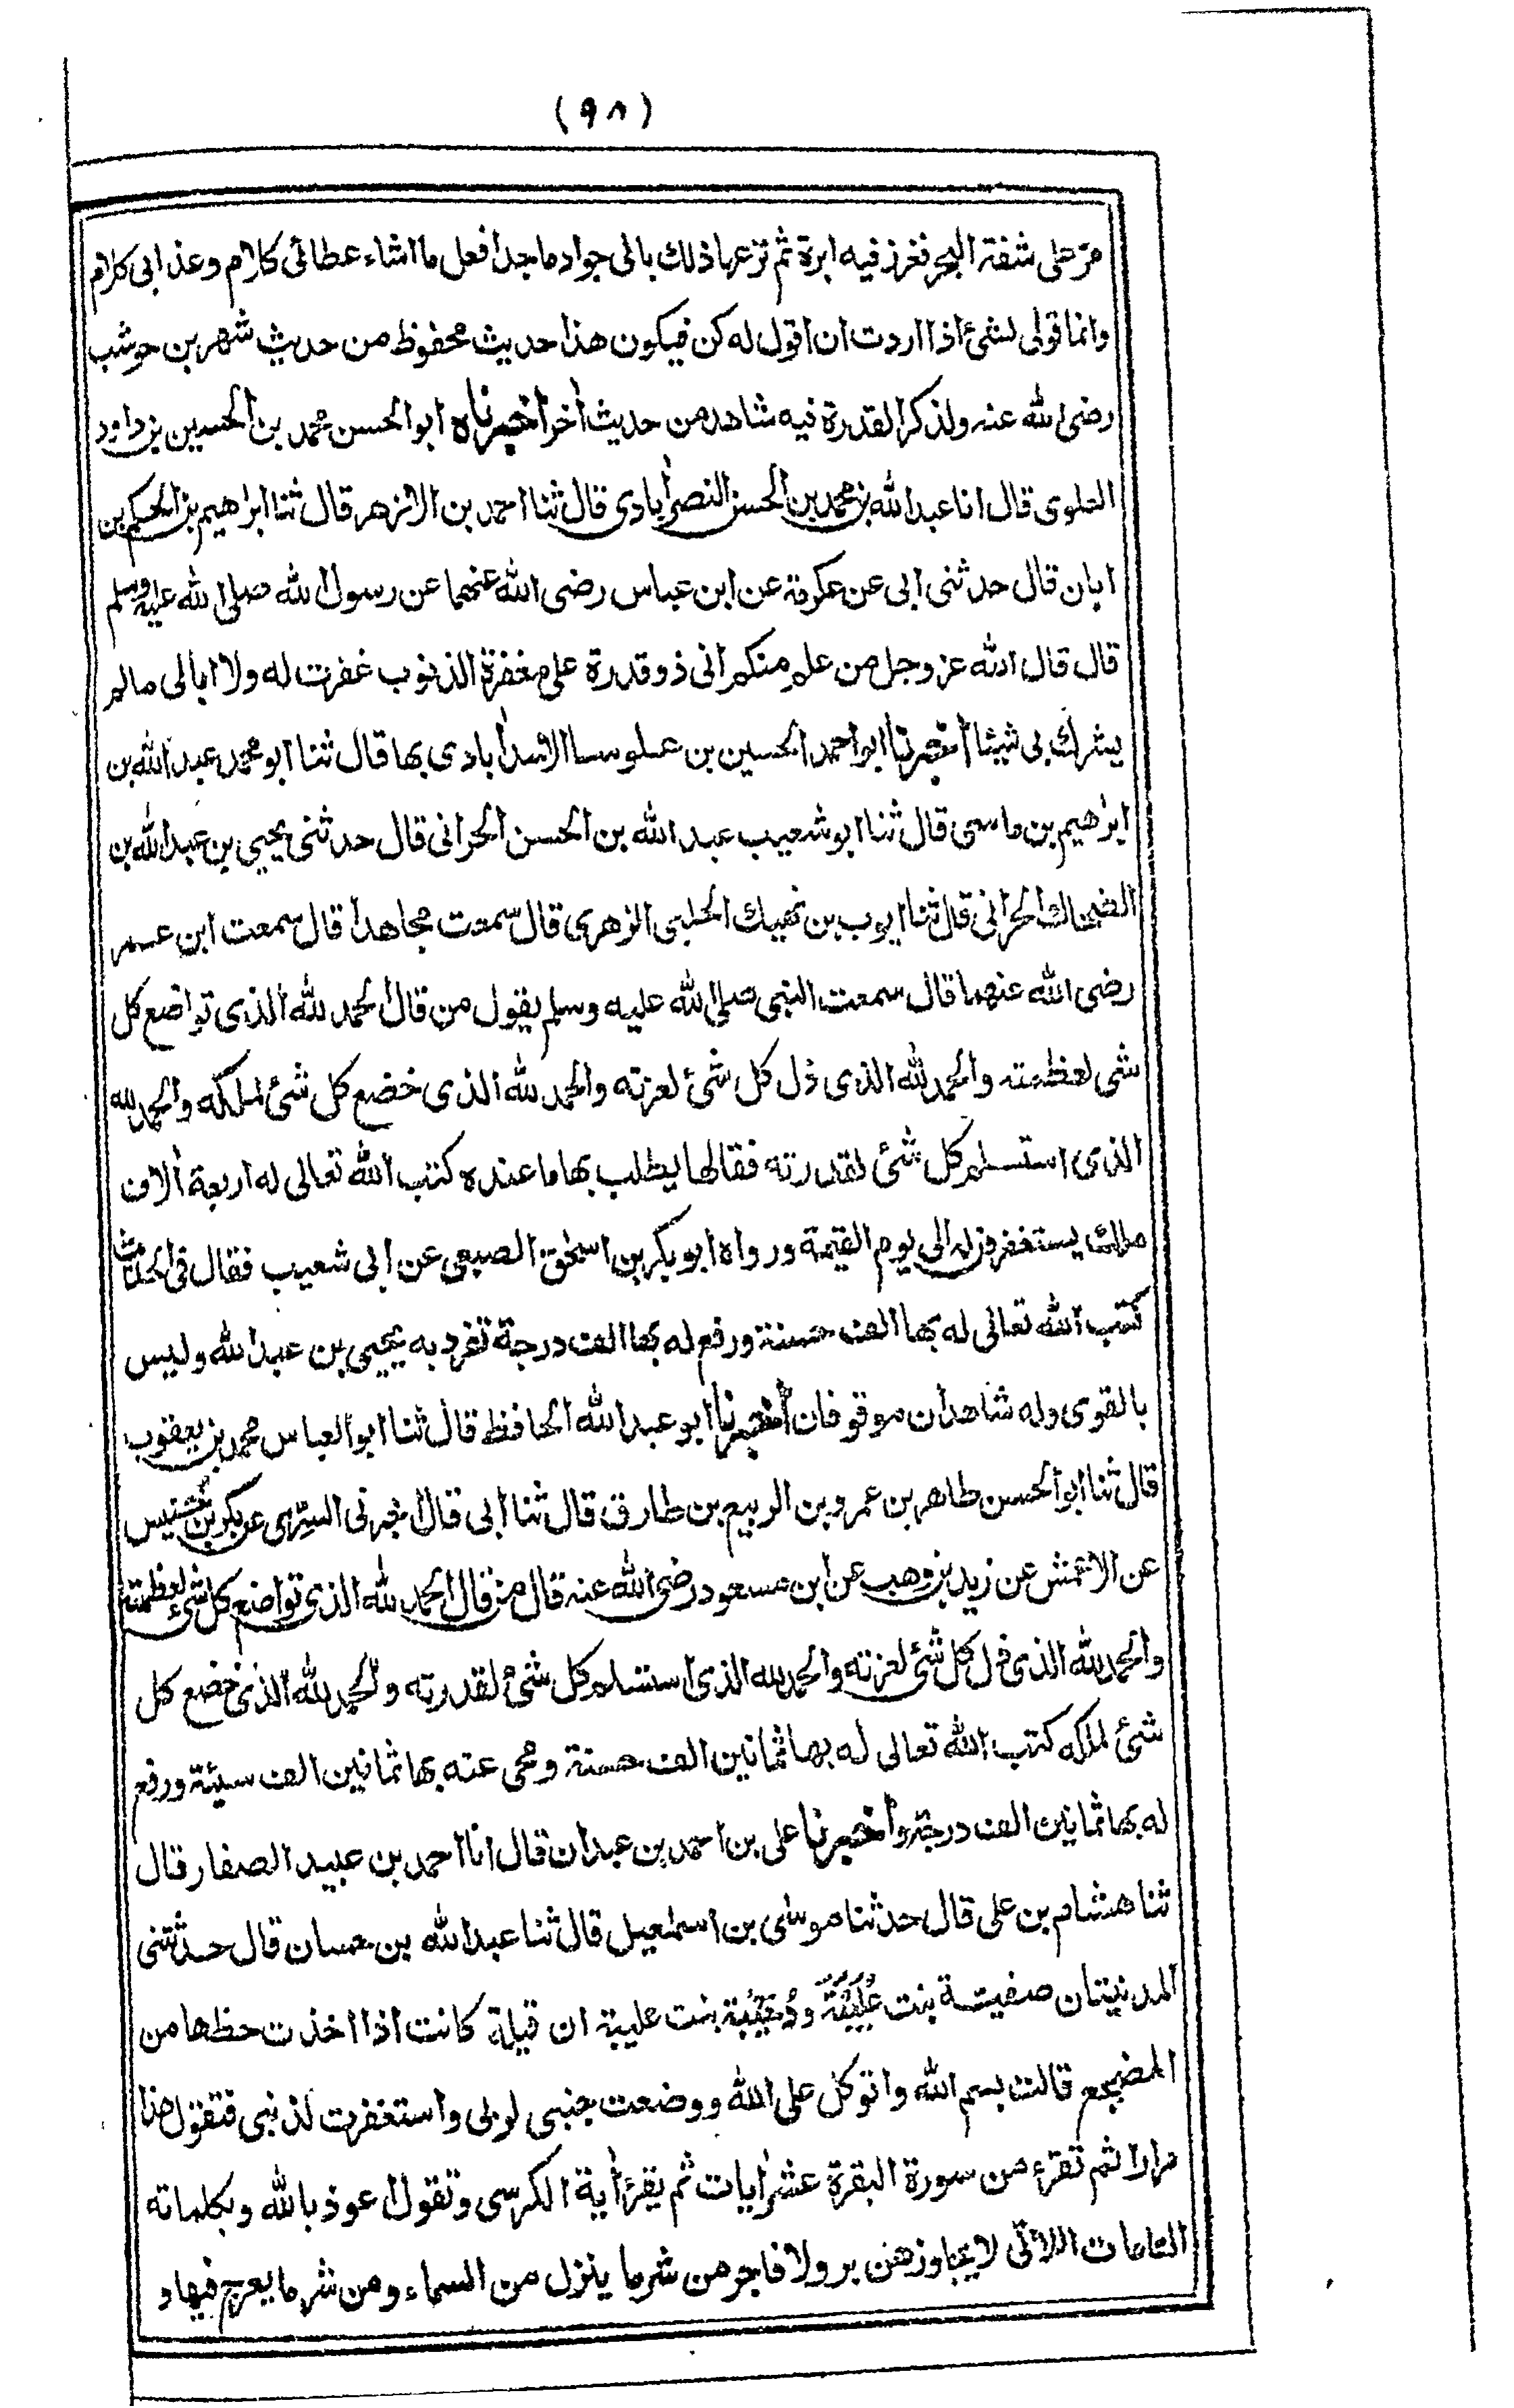 (٩٨)
مر على شفة البحر فغرز فيه ابرة ثم نزعها ذلك بانى جواد ماجد افعل ما اشاء عطائى كلام وعذابى كلام
وانما قولى لشئ اذا اردت ان اقول له كن فيكون هذا حديث محفوظ من حديث شهر بن حوشب
رضى الله عنه ولذكر القدرة فيه شاهد من حديث أخر أخبرناه ابو الحسن محمد بن الحسين بن داود
العلوى قال انا عبد الله بن محمد بن الحسن النصرأبادى قال ثنا احمد بن الازهر قال ثنا ابراهيم بن الحكم بن
ابان قال حدثنى ابى عن عكرمة عن ابن عباس رضى الله عنهما عن رسول الله صلى الله عليه وسلم
قال قال الله عز وجل من علم منكم انى ذو قدرة على مغفرة الذنوب غفرت له ولا ابالى مالم
يشرك بى شيئا أخبرنا ابو احمد الحسين بن علوسا الاسدأبادى بها قال ثنا ابو محمد عبد الله بن
ابراهيم بن ماسى قال ثنا ابو شعيب عبد الله بن الحسن الحرانى قال حدثنى يحيى بن عبد الله بن
الضحاك الحرانى قال ثنا ايوب بن نهيك الحلبى الزهرى قال سمعت مجاهدا قال سمعت ابن عمر
رضى الله عنهما قال سمعت النبى صلى الله عليه وسلم يقول من قال الحمد لله الذى تواضع كل
شى لعظمته والحمد لله الذى ذل كل شئ لعزته والحمد لله الذى خضع كل شئ لملكه والحمد لله
الذى استسلم كل شئ لقدرته فقالها يطلب بها ما عنده كتب الله تعالى له اربعة ألاف
ملك يستغفرون له الى يوم القيمة ورواه ابو بكر بن اسحق الصبغى عن ابى شعيب فقال فى الحديث
كتب الله تعالى له بها الف حسنة ورفع له بها الف درجة تفرد به يحيى بن عبد الله وليس
بالقوى وله شاهدان موقوفان أخبرنا ابو عبد الله الحافظ قال ثنا ابو العباس محمد بن يعقوب
قال ثنا ابو الحسن طاهر بن عمرو بن الربيع بن طارق قال ثنا أبى قال اخبرنى السرى عن بكر بن خنيس
عن الاعمش عن زيد بن وهب عن ابن مسعود رضى الله عنه قال من قال الحمد لله الذى تواضع كل شىء لعظمته
والحمد لله الذى ذل كل شئ لعزته والحمد لله الذى استسلم كل شئ لقدرته والحمد لله الذى خضع كل
شئ لملكه كتب الله تعالى له بها ثمانين الف حسنة ومحى عنه بها ثمانين الف سيئة ورفع
له بها ثمانين الف درجة وأخبرنا على بن احمد بن عبدان قال انا احمد بن عبيد الصفار قال
ثنا هشام بن على قال حدثنا موسى بن اسمعيل قال ثنا عبد الله بن حسان قال حدثتنى
المدنيتان صفية بنت عُلَيْبَةَ ودُحَيْبَة بنت عليبة ان قيلة كانت اذا اخذت حظها من
المضجع قالت بسم الله واتوكل على الله ووضعت جنبى لربى واستغفرت لذنبى فتقول هذا
مرارا ثم تقرء من سورة البقرة عشر أيات ثم يقرأ أية الكرسى وتقول اعوذ بالله وبكلماته
التامات اللاتى لا يجاوزهن بر ولا فاجر من شر ما ينزل من السماء ومن شر ما يعرج فيها و